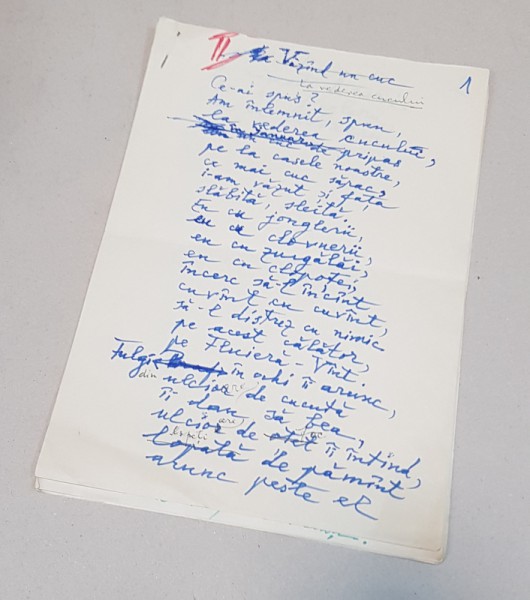 II Văzînd un cuc 1
La vederea cucului
Ce-ai spus?
Am îndemnit, spun,
la vederea cucului,
cuc de pripas
pe la casele noastre,
ce mai cuc sărac,
i-am văzut și fața
slăbită, sleită.
Eu cu jonglerii,
eu cu clovnerii,
eu cu zurgălăi,
eu cu clopoței,
încerc să-l încînt
cuvînt cu cuvînt,
să-l distrez cu nimic
pe acest călător,
pe Fluieră-Vînt.
Fulgi în ochi îi arunc,
din
ulcior de cucută
îi dau să bea,
ulcior de oțet îi întind,
lopată de pămînt
arunc peste el